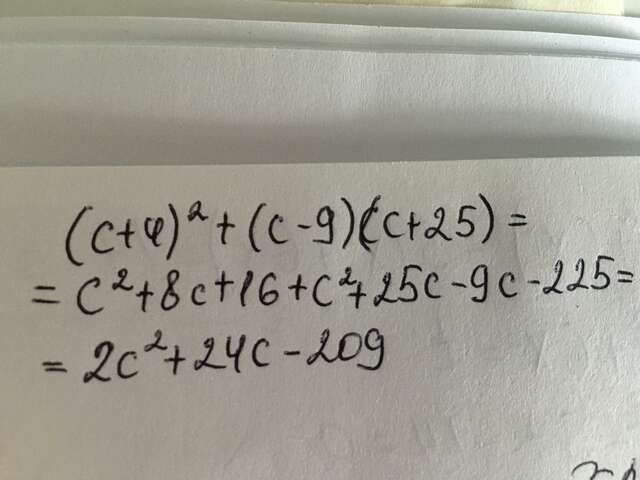 (c+4)² + (c-9)(c+25) =
= c²+8c+16+c²+25c-9c-225=
= 2c²+24c-209